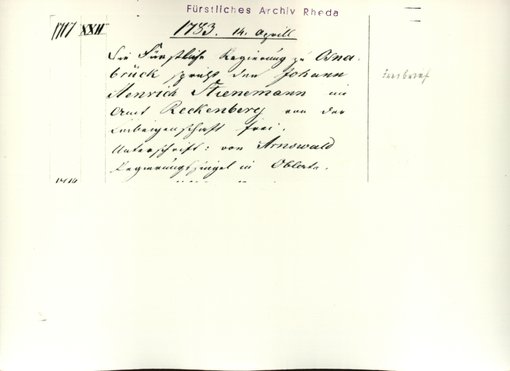 Fürstliches Archiv Rheda
1717 XXII 1783. 14. Aprill
Die Fürstliche Regierung zu Osna-
brück spricht den Johann
Henrich Stienemann im
Amt Reckenberg von der
Leibeigenschaft frei.
Unterschrift: von Arnswald
Regierungssiegel in Oblate.